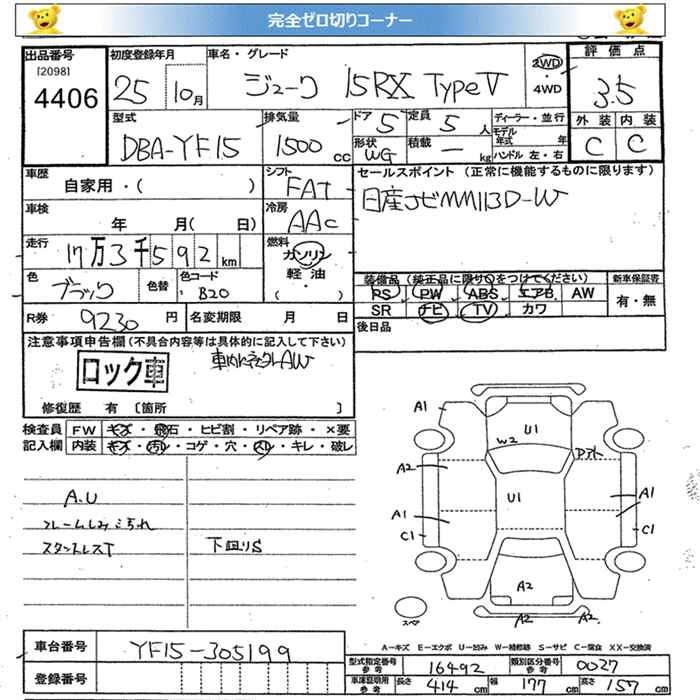 完全ゼロ切りコーナー
出品番号 初度登録年月 車名・グレード 2WD・4WD 評価点
[2098]
4406 25 10月 ジューク 15RX TypeV 3.5
型式 排気量 ドア 定員 ディーラー・並行 外装 内装
DBA-YF15 1500cc 5 5人 モデル年式 年 C C
形状 WG 積載 ー kg ハンドル 左・右
車歴 シフト セールスポイント (正常に機能するものに限ります)
自家用・( ) FAT 日産ナビMM113D-W
車検 冷房
年 月( 日) AAC
走行 燃料
17万3千592km ガソリン
軽油
・( )
色 色替 色コード 装備品 (純正品に限り○をつけてください) 新車保証書
ブラック B20 PS PW ABS エアB AW 有・無
SR ナビ TV カワ
R券 9230円 名変期限 月 日 後日品
注意事項申告欄(不具合内容等は具体的に記入して下さい)
ロック車
修復歴 有 [箇所 ]
検査員 FW キズ・飛石・ヒビ割・リペア跡・×要
記入欄 内装 キズ・汚レ・コゲ・穴・スレ・キレ・破レ
A1 U1
W2
A2 A1
U1
A1
C1 C1
A.U
フレームしみこられ
下回りS
A2
スペア A2 A2
A-キズ E-エクボ U-凹み W-補修跡 S-サビ C-腐食 XX-交換済
車台番号 YF15-305199
型式指定番号参考 16492 類別区分番号参考 0027
登録番号 車庫証明用参考 長さ 414cm 幅 177cm 高さ 157cm